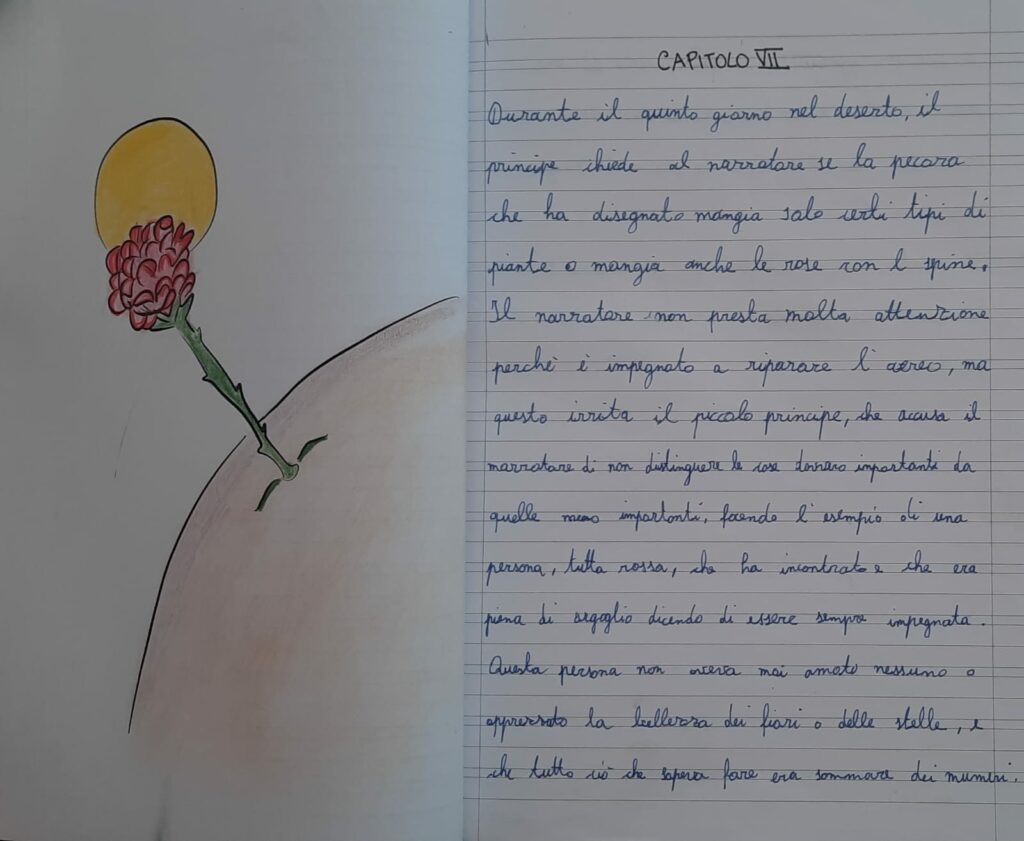 CAPITOLO VII
Durante il quinto giorno nel deserto, il
principe chiede al narratore se la pecora
che ha disegnato mangia solo certi tipi di
piante o mangia anche le rose con l spine.
Il narratore non presta molta attenzione
perchè è impegnato a riparare l'aereo, ma
questo irrita il piccolo principe, che accusa il
narratore di non distinguere le cose davvero importanti da
quelle meno importanti, facendo l'esempio di una
persona, tutta rossa, che ha incontrato e che era
piena di orgoglio dicendo di essere sempre impegnata.
Questa persona non aveva mai amato nessuno o
apprezzato la bellezza dei fiori o delle stelle, e
che tutto ciò che sapeva fare era sommare dei numeri.